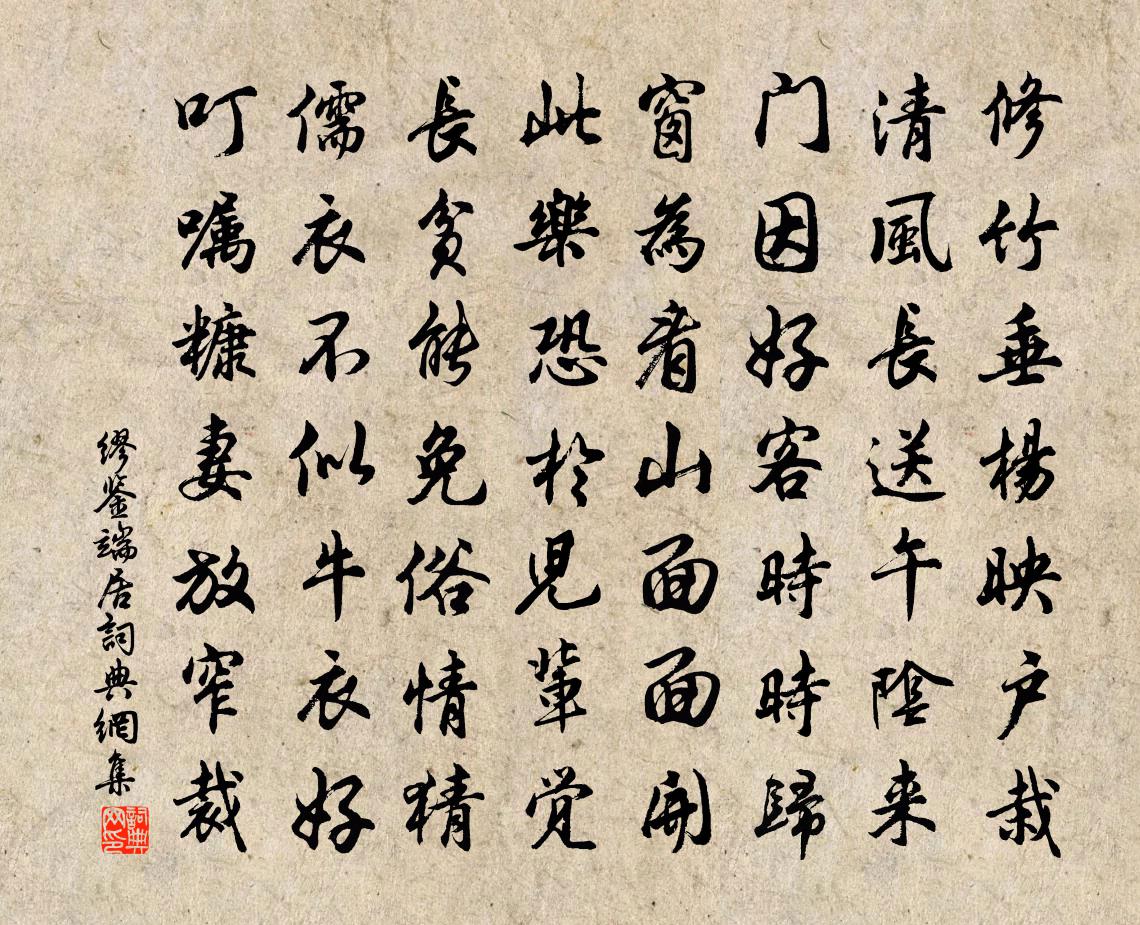 修竹垂楊映户栽
清風長送午陰来
门因好客時時歸
窗為看山面面開
此樂恐於児輩觉
長貧能免俗情猜
儒衣不似牛衣好
叮嘱糠妻放窄裁
繆鉴端居詞典網集
詞典网印